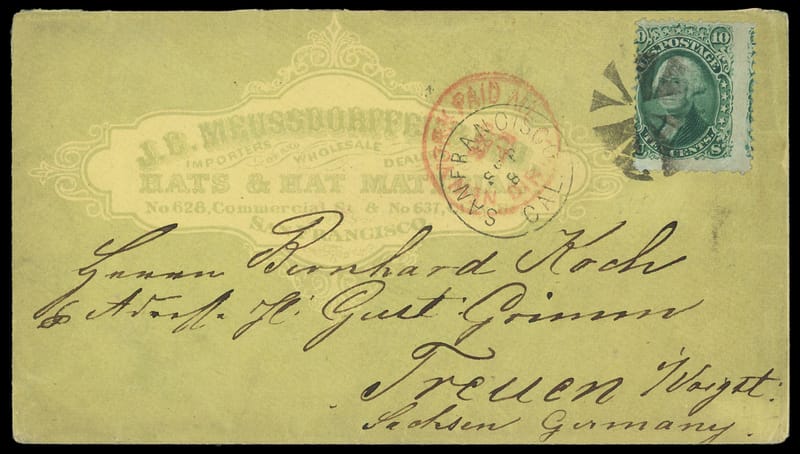 J. C. MEUSSDORFFE
IMPORTERS & WHOLESALE DEAL
HATS & HAT MAT
No 628, Commercial St. & No 637,
SAN FRANCISCO
PAID ALL
SAN FRANCISCO
CAL
10
U.S. POSTAGE
TEN CENTS
Herrn Bernhard Koch
Adresse H: Gust: Grimm
Treuen Voigtl:
Sachsen Germany.